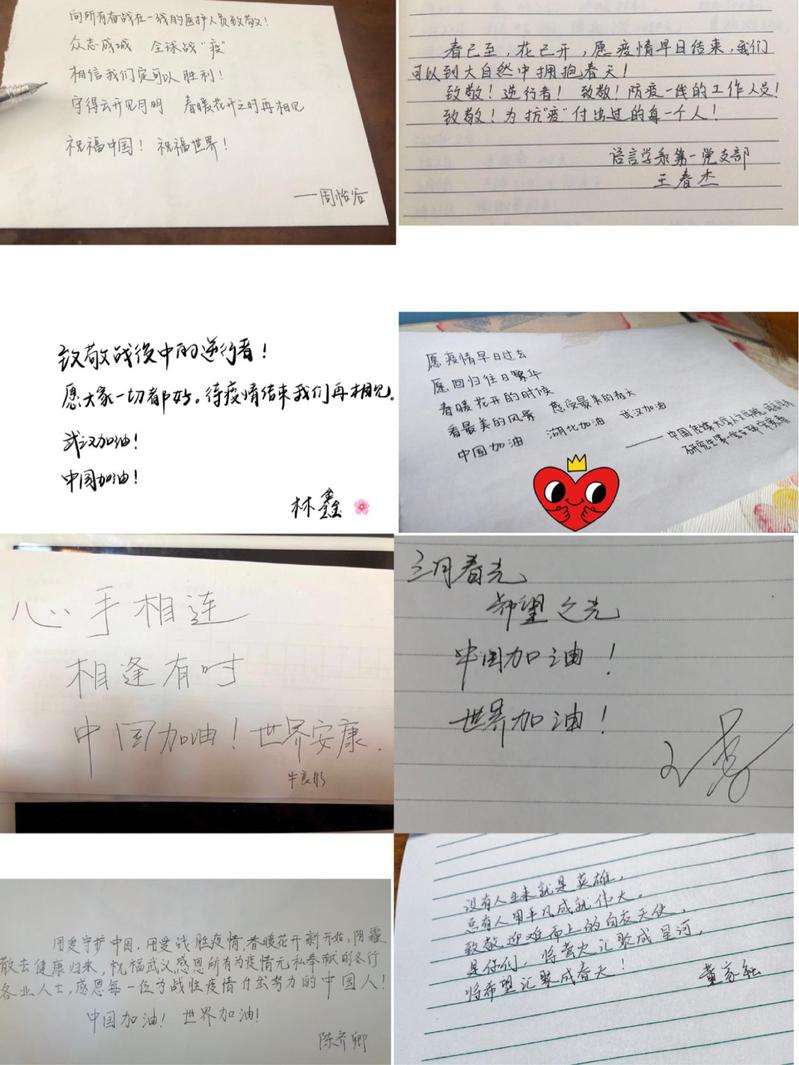 向所有奋战在一线的医护人员致敬!
众志成城 全球战"疫"
相信我们定可以胜利!
守得云开见月明 春暖花开之时再相见
祝福中国! 祝福世界!
——周怡谷
春已至,花已开,愿疫情早日结束,我们
可以到大自然中拥抱春天!
致敬!逆行者! 致敬!防疫一线的工作人员!
致敬!为抗"疫"付出过的每一个人!
语言学和第一党支部
王春杰
致敬战役中的逆行者!
愿大家一切都好。待疫情结束我们再相见。
武汉加油!
中国加油!
林鑫
愿疫情早日过去
愿回归往日繁华
春暖花开的时候
看最美的风景 感受最美的春天
中国加油 湖北加油 武汉加油
——中国传媒大学人文学院
研究生第一党支部
心手相连
相逢有时
中国加油!世界安康.
三月春光
希望之光
中国加油!
世界加油!
用爱守护中国,用爱战胜疫情,春暖花开新开始,阴霾
散去健康归来,祝福武汉,感恩所有为疫情无私奉献的各行
各业人士,感恩每一位为战胜疫情付出努力的中国人!
中国加油! 世界加油!
陈齐卿
没有人生来就是英雄,
总有人用平凡成就伟大。
致敬迎难而上的白衣天使,
是你们,将萤火汇聚成星河,
将希望汇聚成春天!
董家